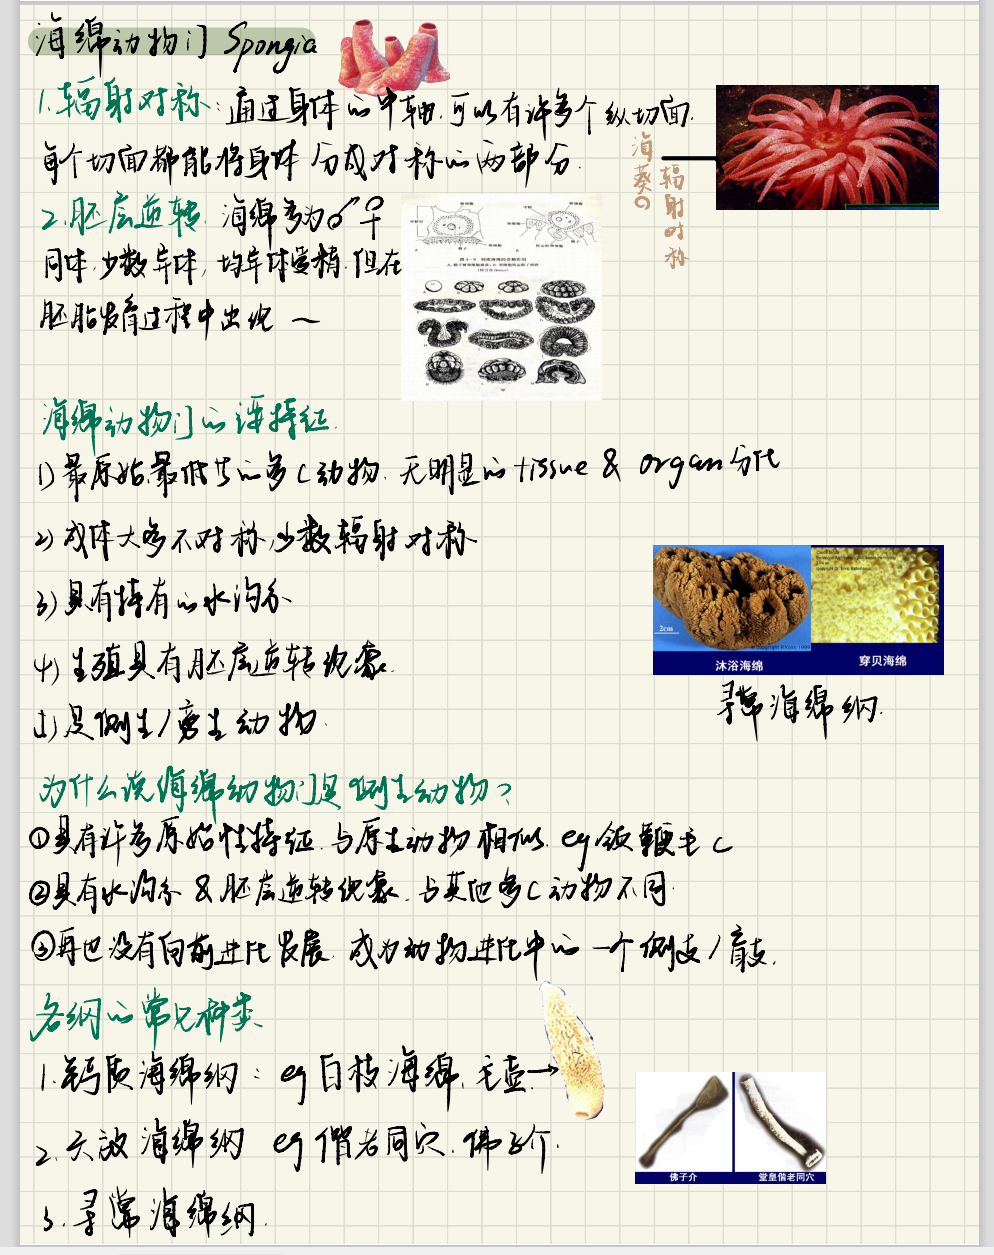 海绵动物门 Spongia
1.辐射对称：通过身体的中轴，可以有许多个纵切面.
每个切面都能将身体分成对称的两部分.
海葵の
辐射对称
2.胚层逆转. 海绵多为♂♀
同体,少数异体, 均异体受精.但在
胚胎发育过程中出现 ~
海绵动物门的诸特征.
1)最原始,最低等的多C动物.无明显的tissue & organ分化
2)成体大多不对称,少数辐射对称
3)具有特有的水沟系
4)生殖具有胚层逆转现象.
5)是侧生/旁生动物.
2cm
沐浴海绵
穿贝海绵
寻常海绵纲.
为什么说海绵动物门是侧生动物?
①具有许多原始性特征.与原生动物相似. eg领鞭毛C
②具有水沟系&胚层逆转现象.与其他多C动物不同.
③再也没有向前进化发展.成为动物进化中的一个侧支/盲支.
各纲的常见种类
1.钙质海绵纲: eg白枝海绵、毛壶→
2.六放海绵纲 eg偕老同穴.佛子介.
佛子介
堂皇偕老同穴
3.寻常海绵纲.